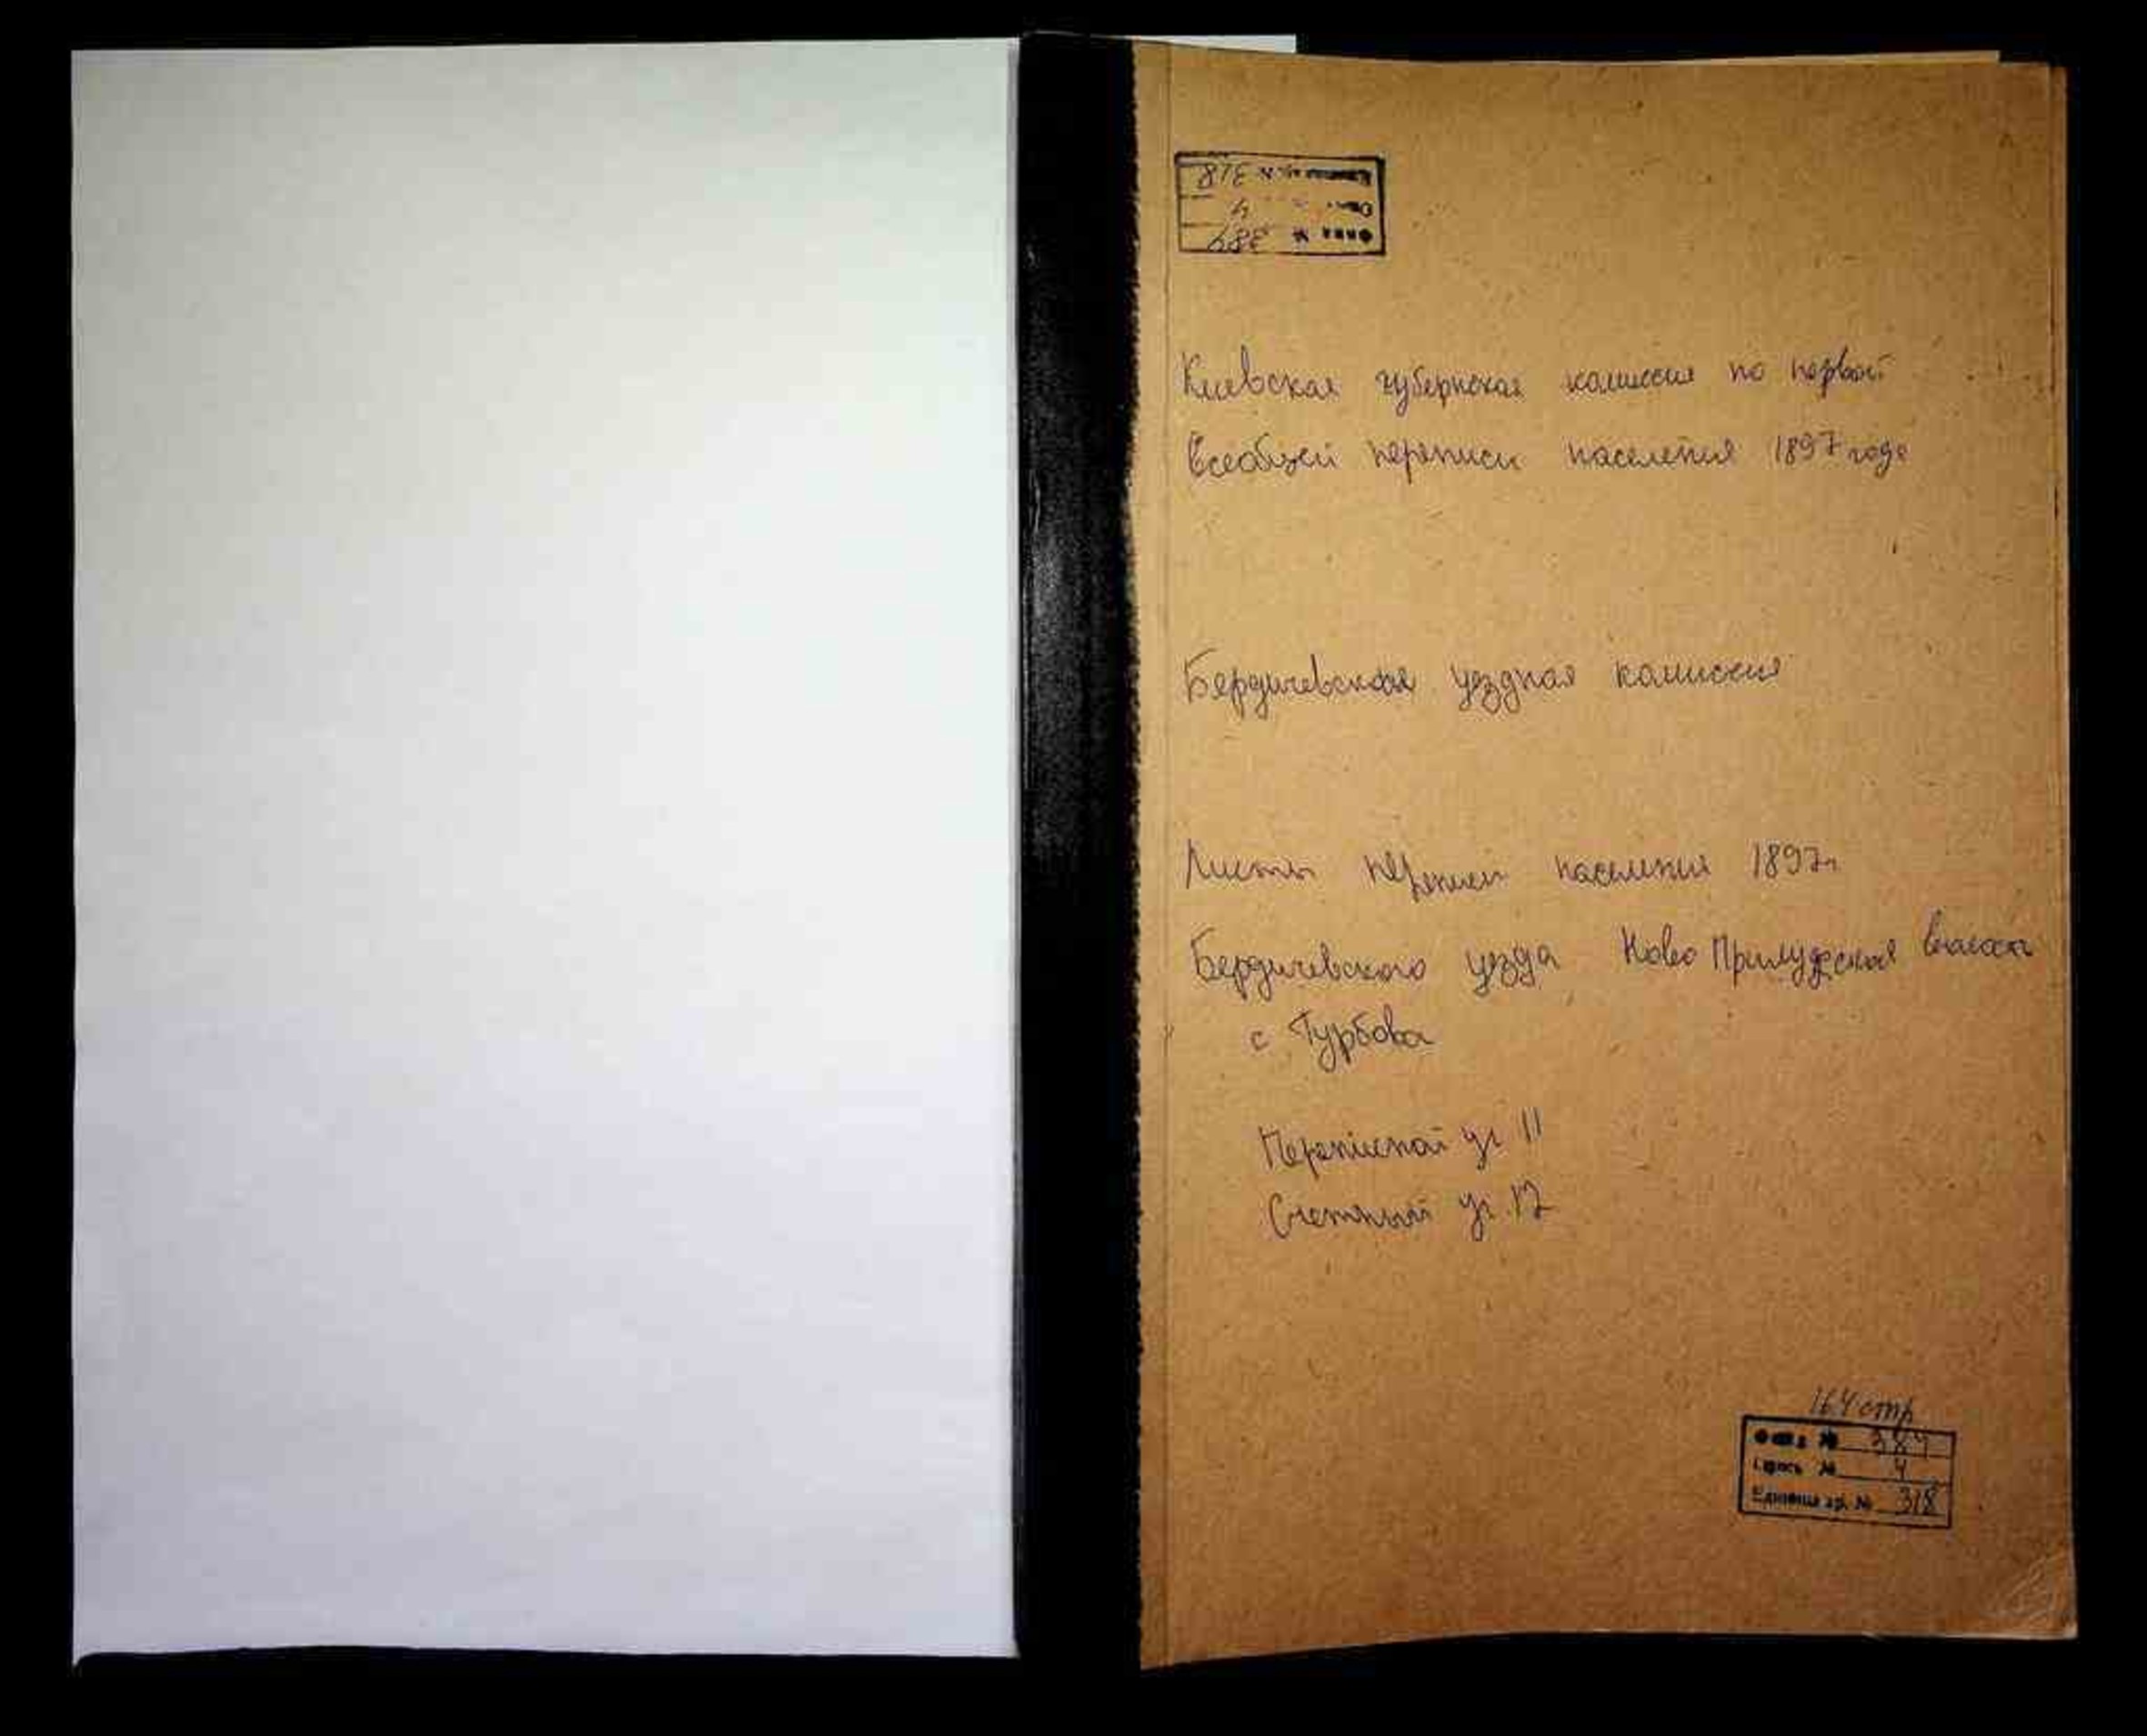 Фонд № 384
Опись № 4
Единица хр. № 318
Киевская губернская комиссия по первой
Всеобщей переписи населения 1897 года
Бердичевская уездная комиссия
Листы переписи населения 1897г
Бердичевского уезда Ново Прилуцкая волость
с Турбова
Переписной уч 11
Счетный уч. 12
164 стр
Фонд № 384
Опись № 4
Единица хр. № 318